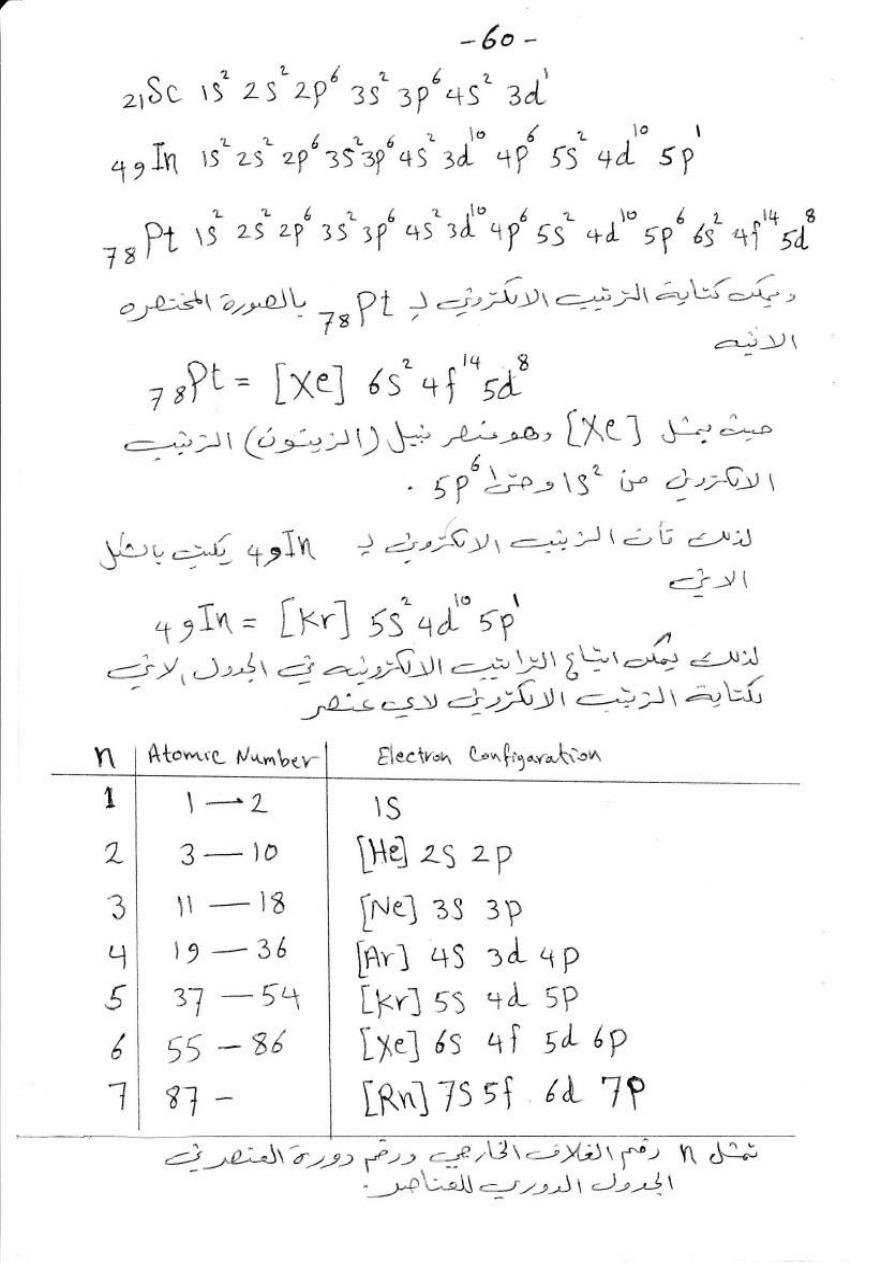 -60-
₂₁Sc 1s² 2s² 2p⁶ 3s² 3p⁶ 4s² 3d¹
₄₉In 1s² 2s² 2p⁶ 3s² 3p⁶ 4s² 3d¹⁰ 4p⁶ 5s² 4d¹⁰ 5p¹
₇₈Pt 1s² 2s² 2p⁶ 3s² 3p⁶ 4s² 3d¹⁰ 4p⁶ 5s² 4d¹⁰ 5p⁶ 6s² 4f¹⁴ 5d⁸
ويمكن كتابة الترتيب الالكتروني لـ ₇₈Pt بالصورة المختصره
الاتيه
₇₈Pt = [Xe] 6s² 4f¹⁴ 5d⁸
حيث يمثل [Xe] وهو عنصر نبيل (الزينون) الترتيب
الالكتروني من 1s² وحتى 5p⁶ .
لذلك فأن الترتيب الالكتروني لـ ₄₉In يكتب بالشكل
الاتي
₄₉In = [Kr] 5s² 4d¹⁰ 5p¹
لذلك يمكن اتباع التراتيب الالكترونيه في الجدول الاتي
لكتابة الترتيب الالكتروني لاي عنصر
n Atomic Number Electron Configaration
1 1 → 2 1s
2 3 — 10 [He] 2s 2p
3 11 — 18 [Ne] 3s 3p
4 19 — 36 [Ar] 4s 3d 4p
5 37 — 54 [Kr] 5s 4d 5p
6 55 — 86 [Xe] 6s 4f 5d 6p
7 87 - [Rn] 7s 5f 6d 7p
تمثل n رقم الغلاف الخارجي ورقم دورة العنصر في
الجدول الدوري للعناصر.